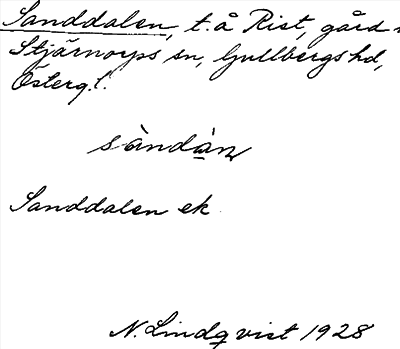 Sanddalen, t.å Rist, gård i
Stjärnorps sn, Gullbergs hd,
Österg. l.
sàndàn
Sanddalen ek
N. Lindqvist 1928